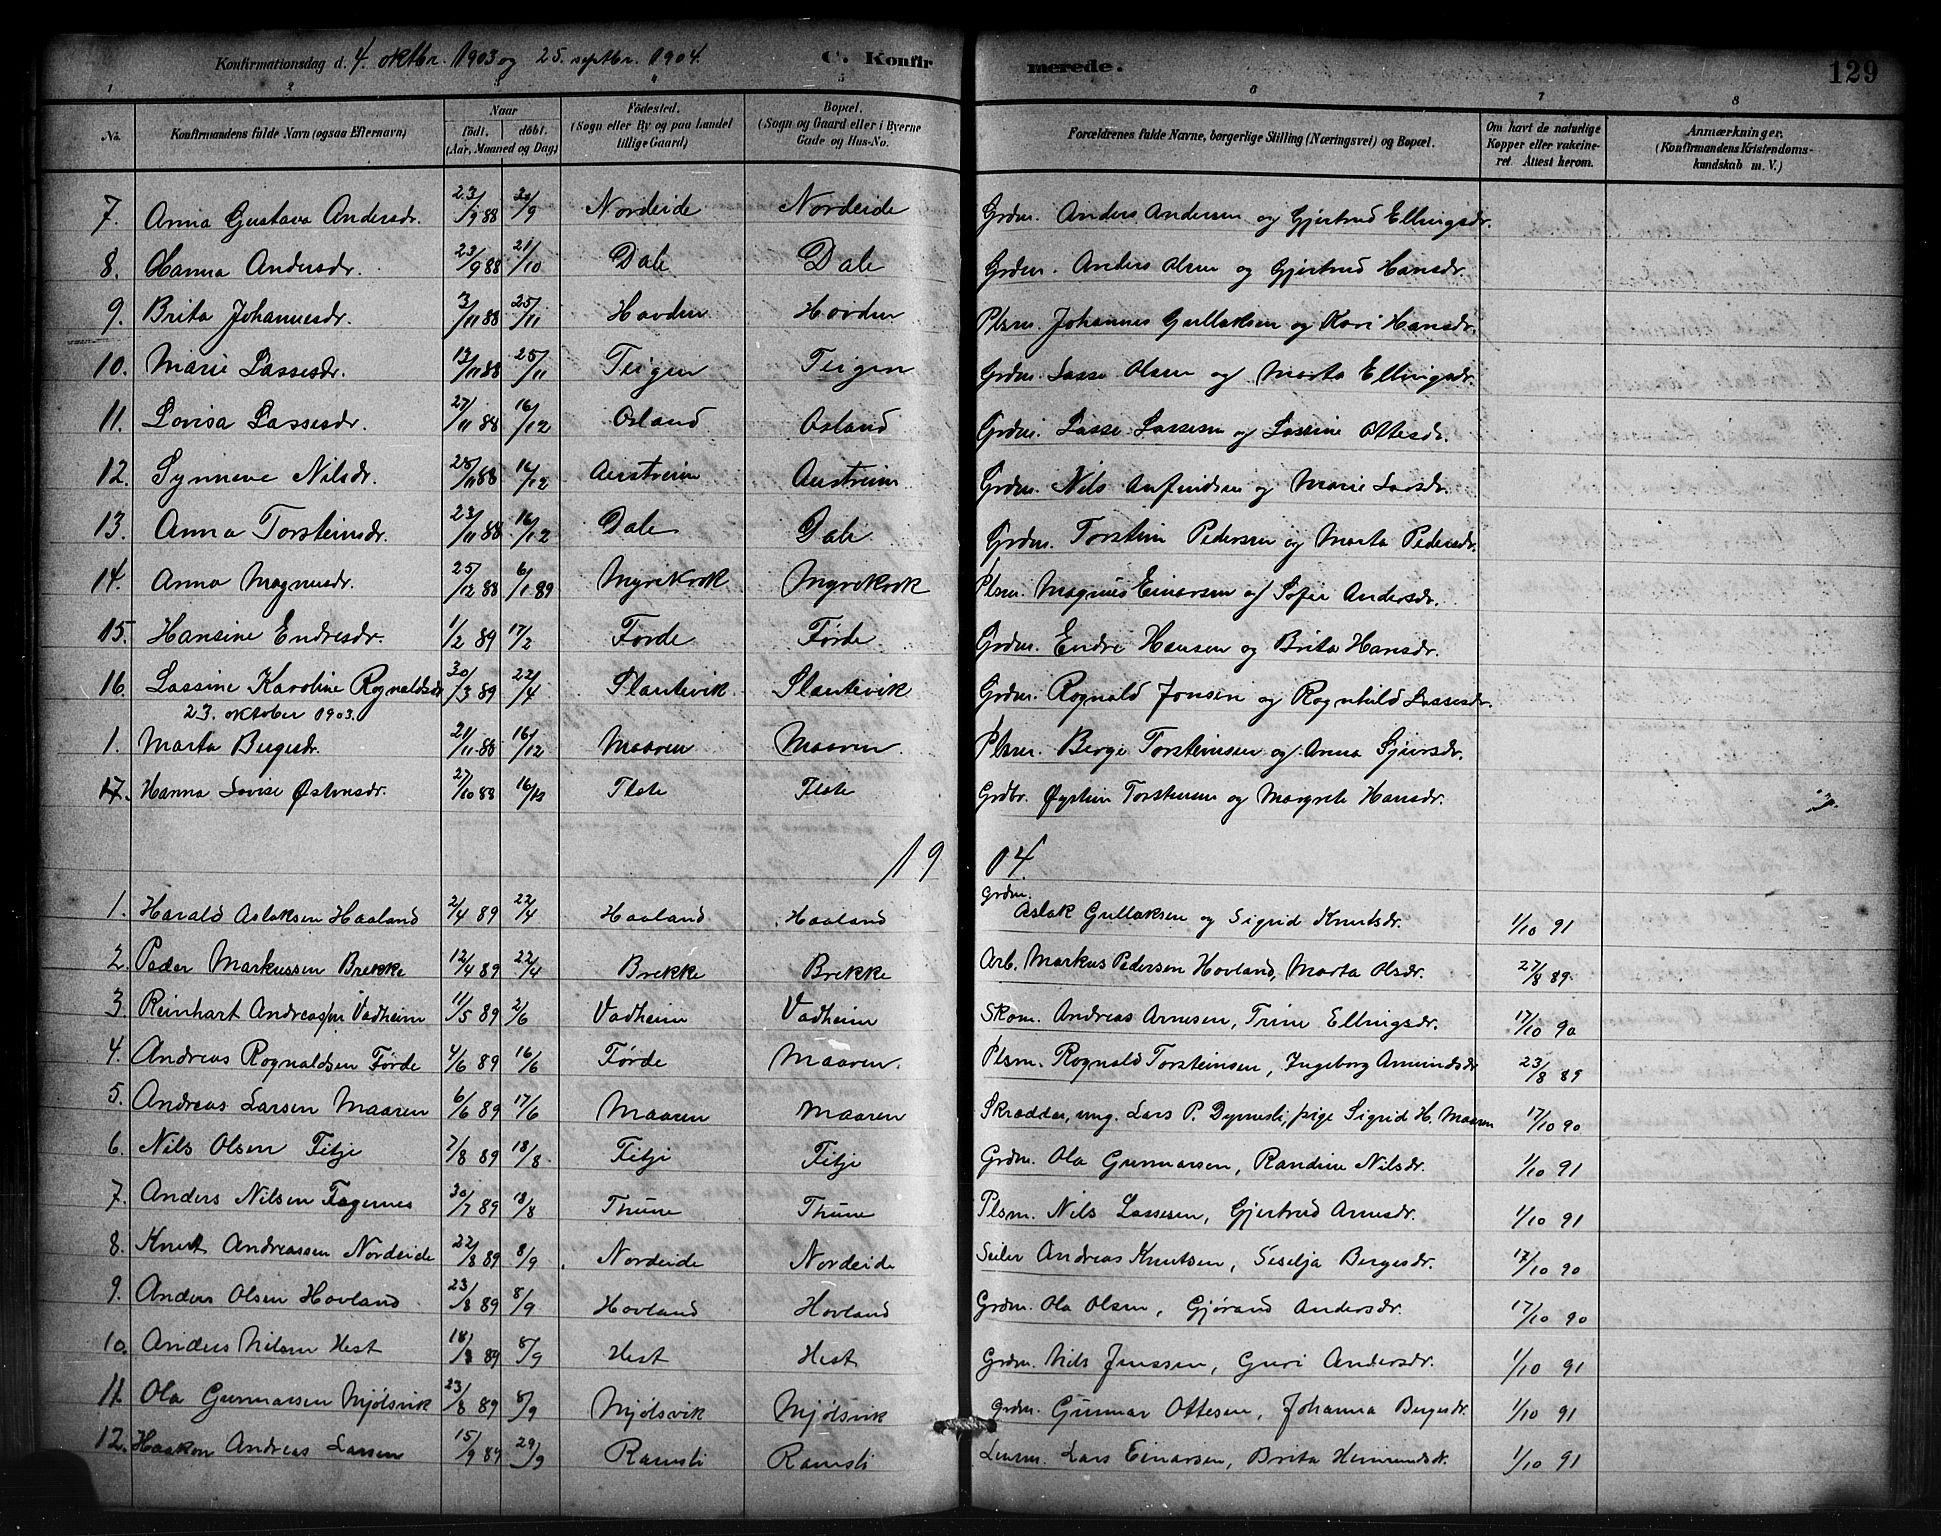 Konfirmationsdag d. 4. oktbr. 1903 og 25. septbr. 1904. C. Konfirmerede. 129
1 2 3 4 5 6 7 8
No. Konfirmandens fulde Navn (ogsaa Efternavn) Naar født. døbt. (Aar, Maaned og Dag) Fødested. (Sogn eller By og paa Landet tillige Gaard) Bopæl. (Sogn og Gaard eller i Byerne Gade og Hus-No. Forældrenes fulde Navne, borgerlige Stilling (Næringsvei) og Bopæl. Om havt de naturlige Kopper eller vakcineret Attest herom. Anmærkninger. (Konfirmandens Kristendomskundskab m. V.)
7. Anna Gustava Andersdr. 23/9 88 30/9 Nordeide Nordeide Grdm. Anders Andersen og Gjertrud Ellingsdr.
8. Hanna Andersdr. 23/9 88 21/10 Dale Dale Grdm. Anders Olsen og Gjertrud Hansdr.
9. Brita Johannesdr. 3/11 88 25/11 Hovden Hovden Plsm. Johannes Gullaksen og Kari Hansdr.
10. Marie Lassesdr. 13/11 88 25/11 Teigen Teigen Grdm. Lasse Olsen og Marta Ellingsdr.
11. Lovisa Lassesdr. 27/11 88 16/12 Osland Osland Grdm. Lasse Lassesen og Lassine Ottesdr.
12. Synneve Nilsdr. 25/11 88 16/12 Austreim Austreim Grdm. Nils Anfindsen og Marie Larsdr.
13. Anna Torsteinsdr. 23/11 88 16/12 Dale Dale Grdm. Torstein Pedersen og Marta Pedersdr.
14. Anna Magnusdr. 25/12 88 6/1 89 Myrekrok Myrekrok Plsm. Magnus Einarsen og Sofie Andersdr.
15. Hansine Endresdr. 1/2 89 17/2 Førde Førde Grdm. Endre Hansen og Brita Hansdr.
16. Lassine Karoline Rognaldsdr. 30/3 89 22/4 Slantevik Slantevik Grdm. Rognald Jonsen og Rognhild Lassesdr.
23. oktober 1903.
1. Marta Bergesdr. 21/11 88 16/12 Maaren Maaren. Plsm. Berge Torsteinsen og Anna Sjursdr.
17. Hanna Lovise Østensdr. 27/10 88 16/12 Flote Flote Grdbr. Øystein Torsteinsen og Margrete Hansdr.
1904.
1. Harald Aslaksen Haaland 2/4 89 22/4 Haaland Haaland Grdm. Aslak Gullaksen og Sigrid Knutsdr. 1/10 91
2. Peder Markussen Brekke 12/4 89 22/4 Brekke Brekke Arb. Markus Pedersen Hovland, Marta Olsdr. 27/8 89.
3. Reinhart Andreassen Vadheim 11/5 89 2/6 Vadheim Vadheim Skom. Andreas Arnesen, Trine Ellingsdr. 17/10 90
4. Andreas Rognaldsen Førde 4/6 89 16/6 Førde Maaren. Plsm. Rognald Torsteinsen, Ingeborg Amundsdr 23/8 89
5. Andreas Larsen Maaren 6/6 89 17/6 Maaren Maaren Skrædder, ung. Lars P. Dymesli, pige Sigrid H. Maaren 17/10 90
6. Nils Olsen Fitje 7/8 89 18/8. Fitje Fitje Grdm. Ola Gunnarsen, Randine Nilsdr. 1/10 91
7. Anders Nilsen Fagernes 30/7 89 18/8 Thune Thune Plsm. Nils Lassesen, Gjertrud Arnesdr. 1/10 91
8. Knut Andreassen Nordeide 22/8 89 8/9 Nordeide Nordeide Seiler Andreas Knutsen, Seselja Bergesdr. 17/10 90
9. Anders Olsen Hovland 23/8 89 8/9 Hovland Hovland Grdm. Ola Olsen, Gjørand Andersdr. 17/10 90
10. Anders Nilsen Hest 18/8 89 8/9 Hest Hest Grdm. Nils Jenssen, Guri Andersdr. 1/10 91
11. Ola Gunnarsen Mjølsvik 23/8 89 8/9 Mjølsvik Mjølsvik Grdm. Gunnar Ottesen, Johanna Bergesdr. 1/10 91
12. Haakon Andreas Larsen 15/9 89 29/9 Ramsli Ramsli Lensm. Lars Einarsen, Brita Heinrundsdr. 1/10 91